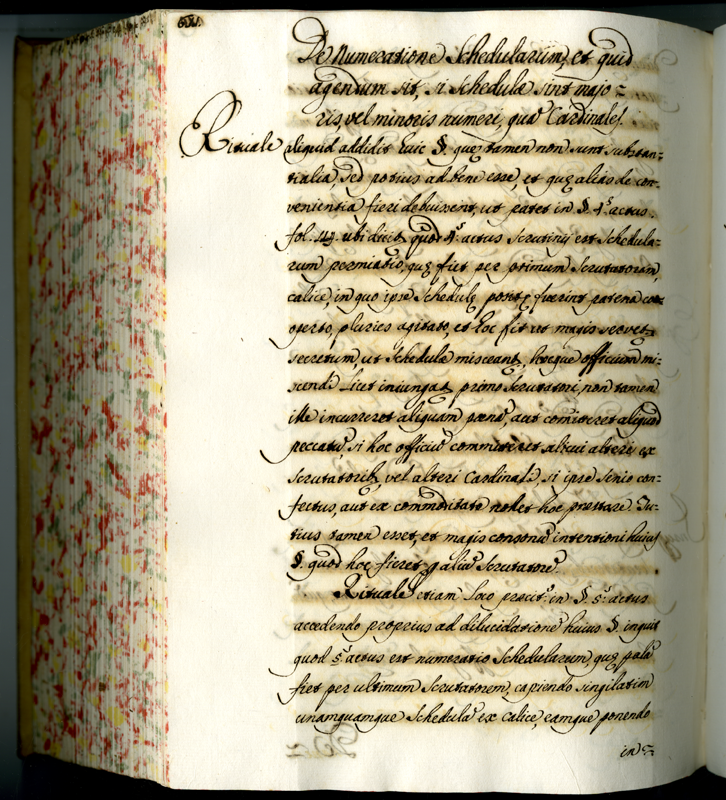 De Numeratione Schedularum, et quid
agendum sit, si Schedulæ sint majo=
ris, vel minoris numeri, quã Cardinales.
Rituale aliquid addidit huic §. quę tamen non sunt substan=
tialia, sed potius ad bene esse, et quę alias de con=
venientia fieri debuissent, ut patet in §. 4.s actus.
fol. 44. ubi dicit, quod 4.s actus Scrutinij est Schedula=
rum permixtio, quę fiet per primum Scrutatorem,
calice, in quo ipsę Schedulę positę fuerint patena co=
operto, pluries agitato, et hoc fit ut magis servet
secretum, ut Schedulæ misceant, hocque officium mi=
scendi licet iniungat primo Scrutatori, non tamen
ille incurreret aliquam pœnã, aut comitteret aliquod
peccatũ, si hoc officiũ committeret alicui alteri ex
Scrutatorib, vel alteri Cardinali, si ipse senio con=
fectus, aut ex commoditate nollet hoc prestare. Tu=
tius tamen esset, et magis consonũ intentioni huius
§. quod hoc fieret p aliũ Scrutatorẽ.
Rituale etiam loco precit.o in §. 5.s actus
accedendo proprius ad dilucidationẽ huius §. inquit
quod 5.s actus est numeratio Schedularum, quę palã
fiet per ultimum Scrutatorem, capiendo singilatim
unamquamque Schedulã ex calice, eamque ponendo
in=